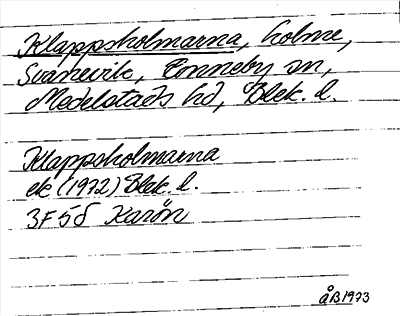 Klappsholmarna, holme,
Svanevik, Ronneby sn,
Medelstads hd, Blek. l.
Klappsholmarna
ek (1972) Blek. l.
3F 5d Karön
ÅB 1973